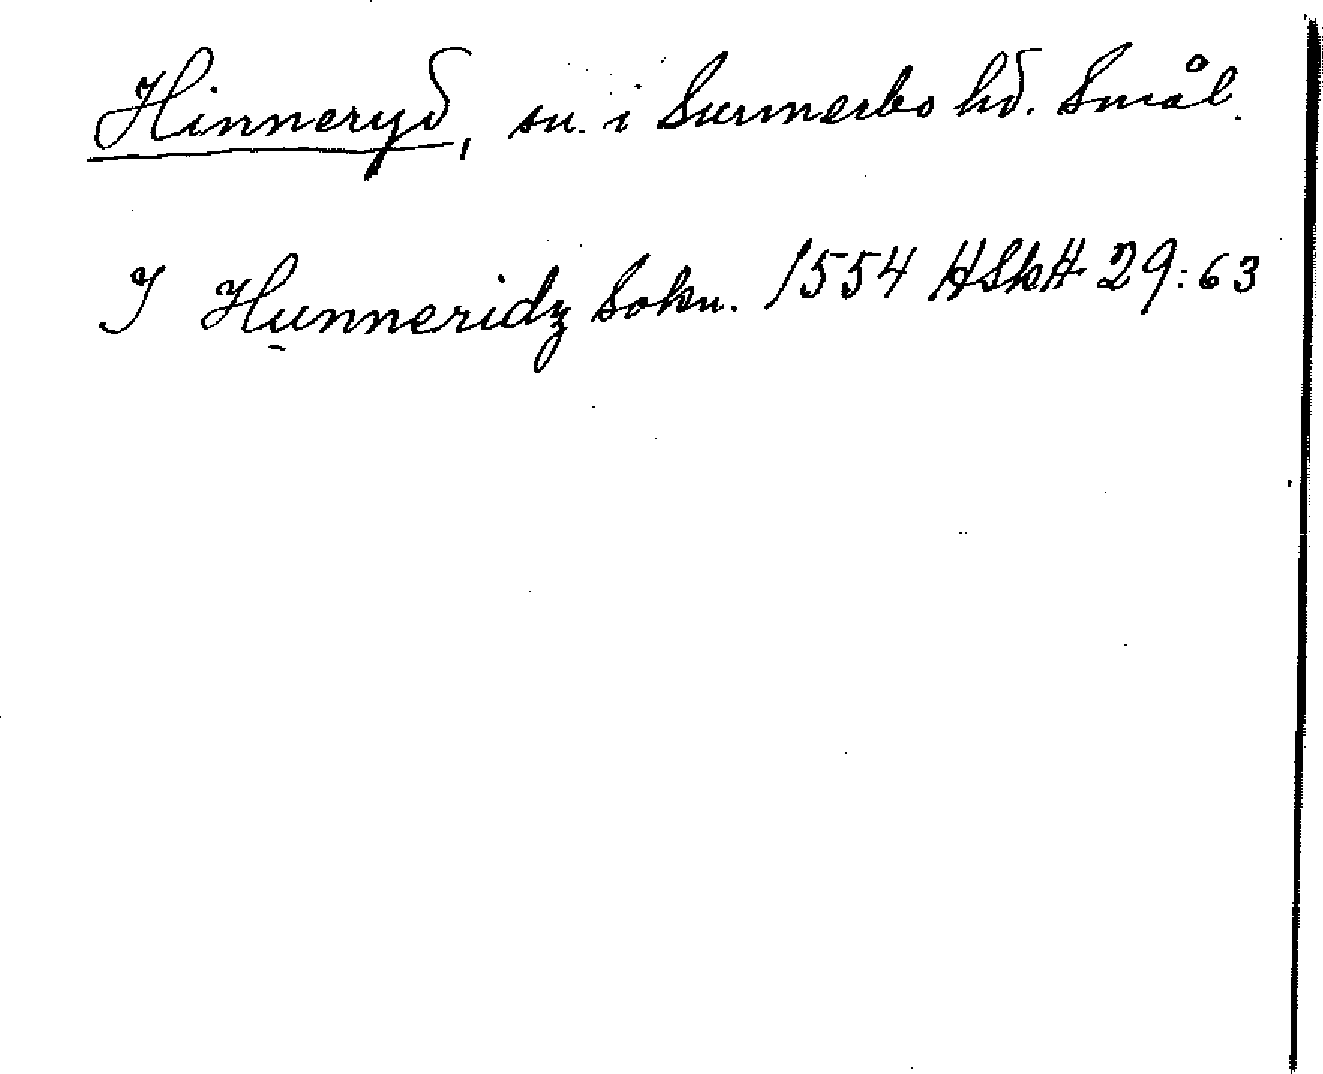 Hinneryd, sn. i Sunnerbo hd. Smål.
I Hunneridz Sokn. 1554 HSkH 29:63